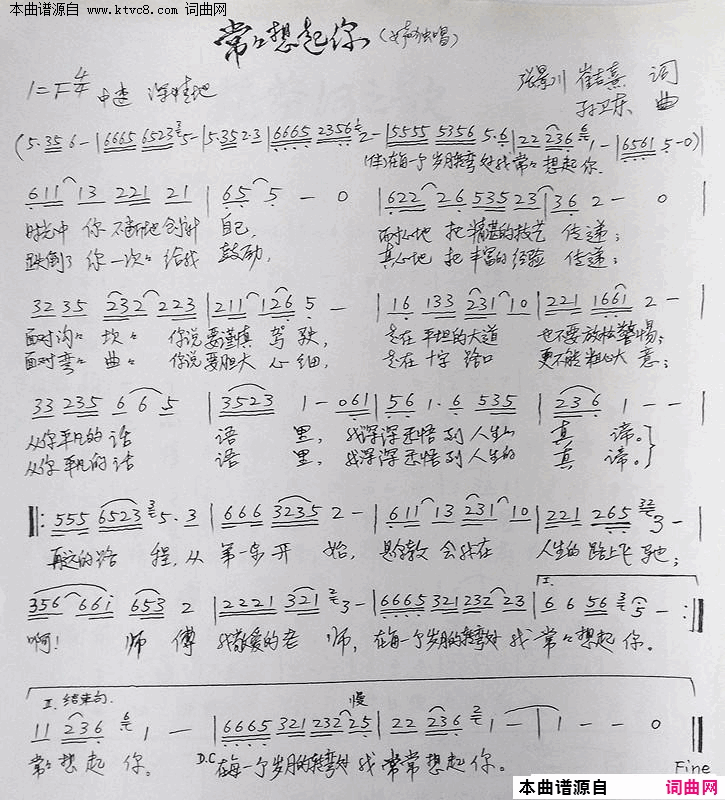 本曲谱源自
www.ktvc8.com 词曲网
常常想起你（女声独唱）
1=F 4/4 中速 深情地
张景川 崔志熹 词
孙卫东 曲
(5·35 6- |6665 6523 5- |5·352·3 |6665 2356 2- |5555 5356 5·6 |22 236 1- |6561 5-0)|
(伴)在每一个岁月转弯处我常常想起你.
611 13 221 21 |65 5 - 0 |622 26 53523 |36 2 - 0 |
时光中 你不断地创新 自己, 耐心地 把精湛的技艺 传递;
跌倒了 你一次次给我 鼓励, 真心地 把丰富的经验 传递;
32 35 232 223 |211 126 5 - |16 133 231 10 |221 1661 2 - |
面对沟沟 坎坎 你说要谨慎 驾驶, 走在平坦的大道 也不要放松警惕;
面对弯弯 曲曲 你说要胆大 心细, 走在十字路口 更不能粗心大意;
33 235 6 6 5 |3523 1 - 061 |56 1·6 535 |236 1 - - |
从你平凡的话 语 里, 我深深感悟到人生的 真 谛。}
从你平凡的话 语 里, 我深深感悟到人生的 真 谛。}
‖: 555 6523 5·3 |666 3235 2 - |611 13 231 10 |221 265 3 - |
再远的路 程,从 第一步开 始, 是你教会我在 人生的路上飞驰;
356 661 653 2 |2221 321 3 - |6665 321 232 23 |6 6 56 5 - :‖
I.
啊! 师 傅 我敬爱的老 师, 在每一个岁月的转弯处 我 常常想起 你。
II. 结束句. 慢
11 236 1 - |6665 321 232 25 |22 236 1 - |1 - - 0 ‖
常常想 起 你。 D.C 在每一个岁月的转弯处 我 常常想起 你。 Fine
本曲谱源自 词曲网